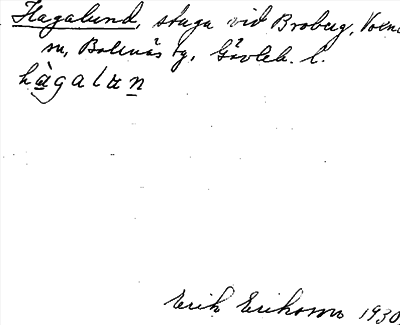 Hagalund, stuga vid Broberg, Voxna
sn, Bollnäs tg, Gävleb. l.
hàgalan
Erik Eriksson 1930